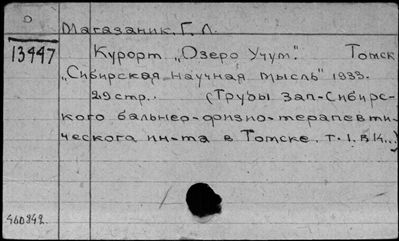 Магазаник, Г. Л.
13447
Курорт „Озеро Учум". Томск
„Сибирская научная мысль" 1933.
29 стр. (Труды Зап-Сибирс-
кого бальнео-физио-терапевти-
ческого ин-та в Томске. т. I. в
460942